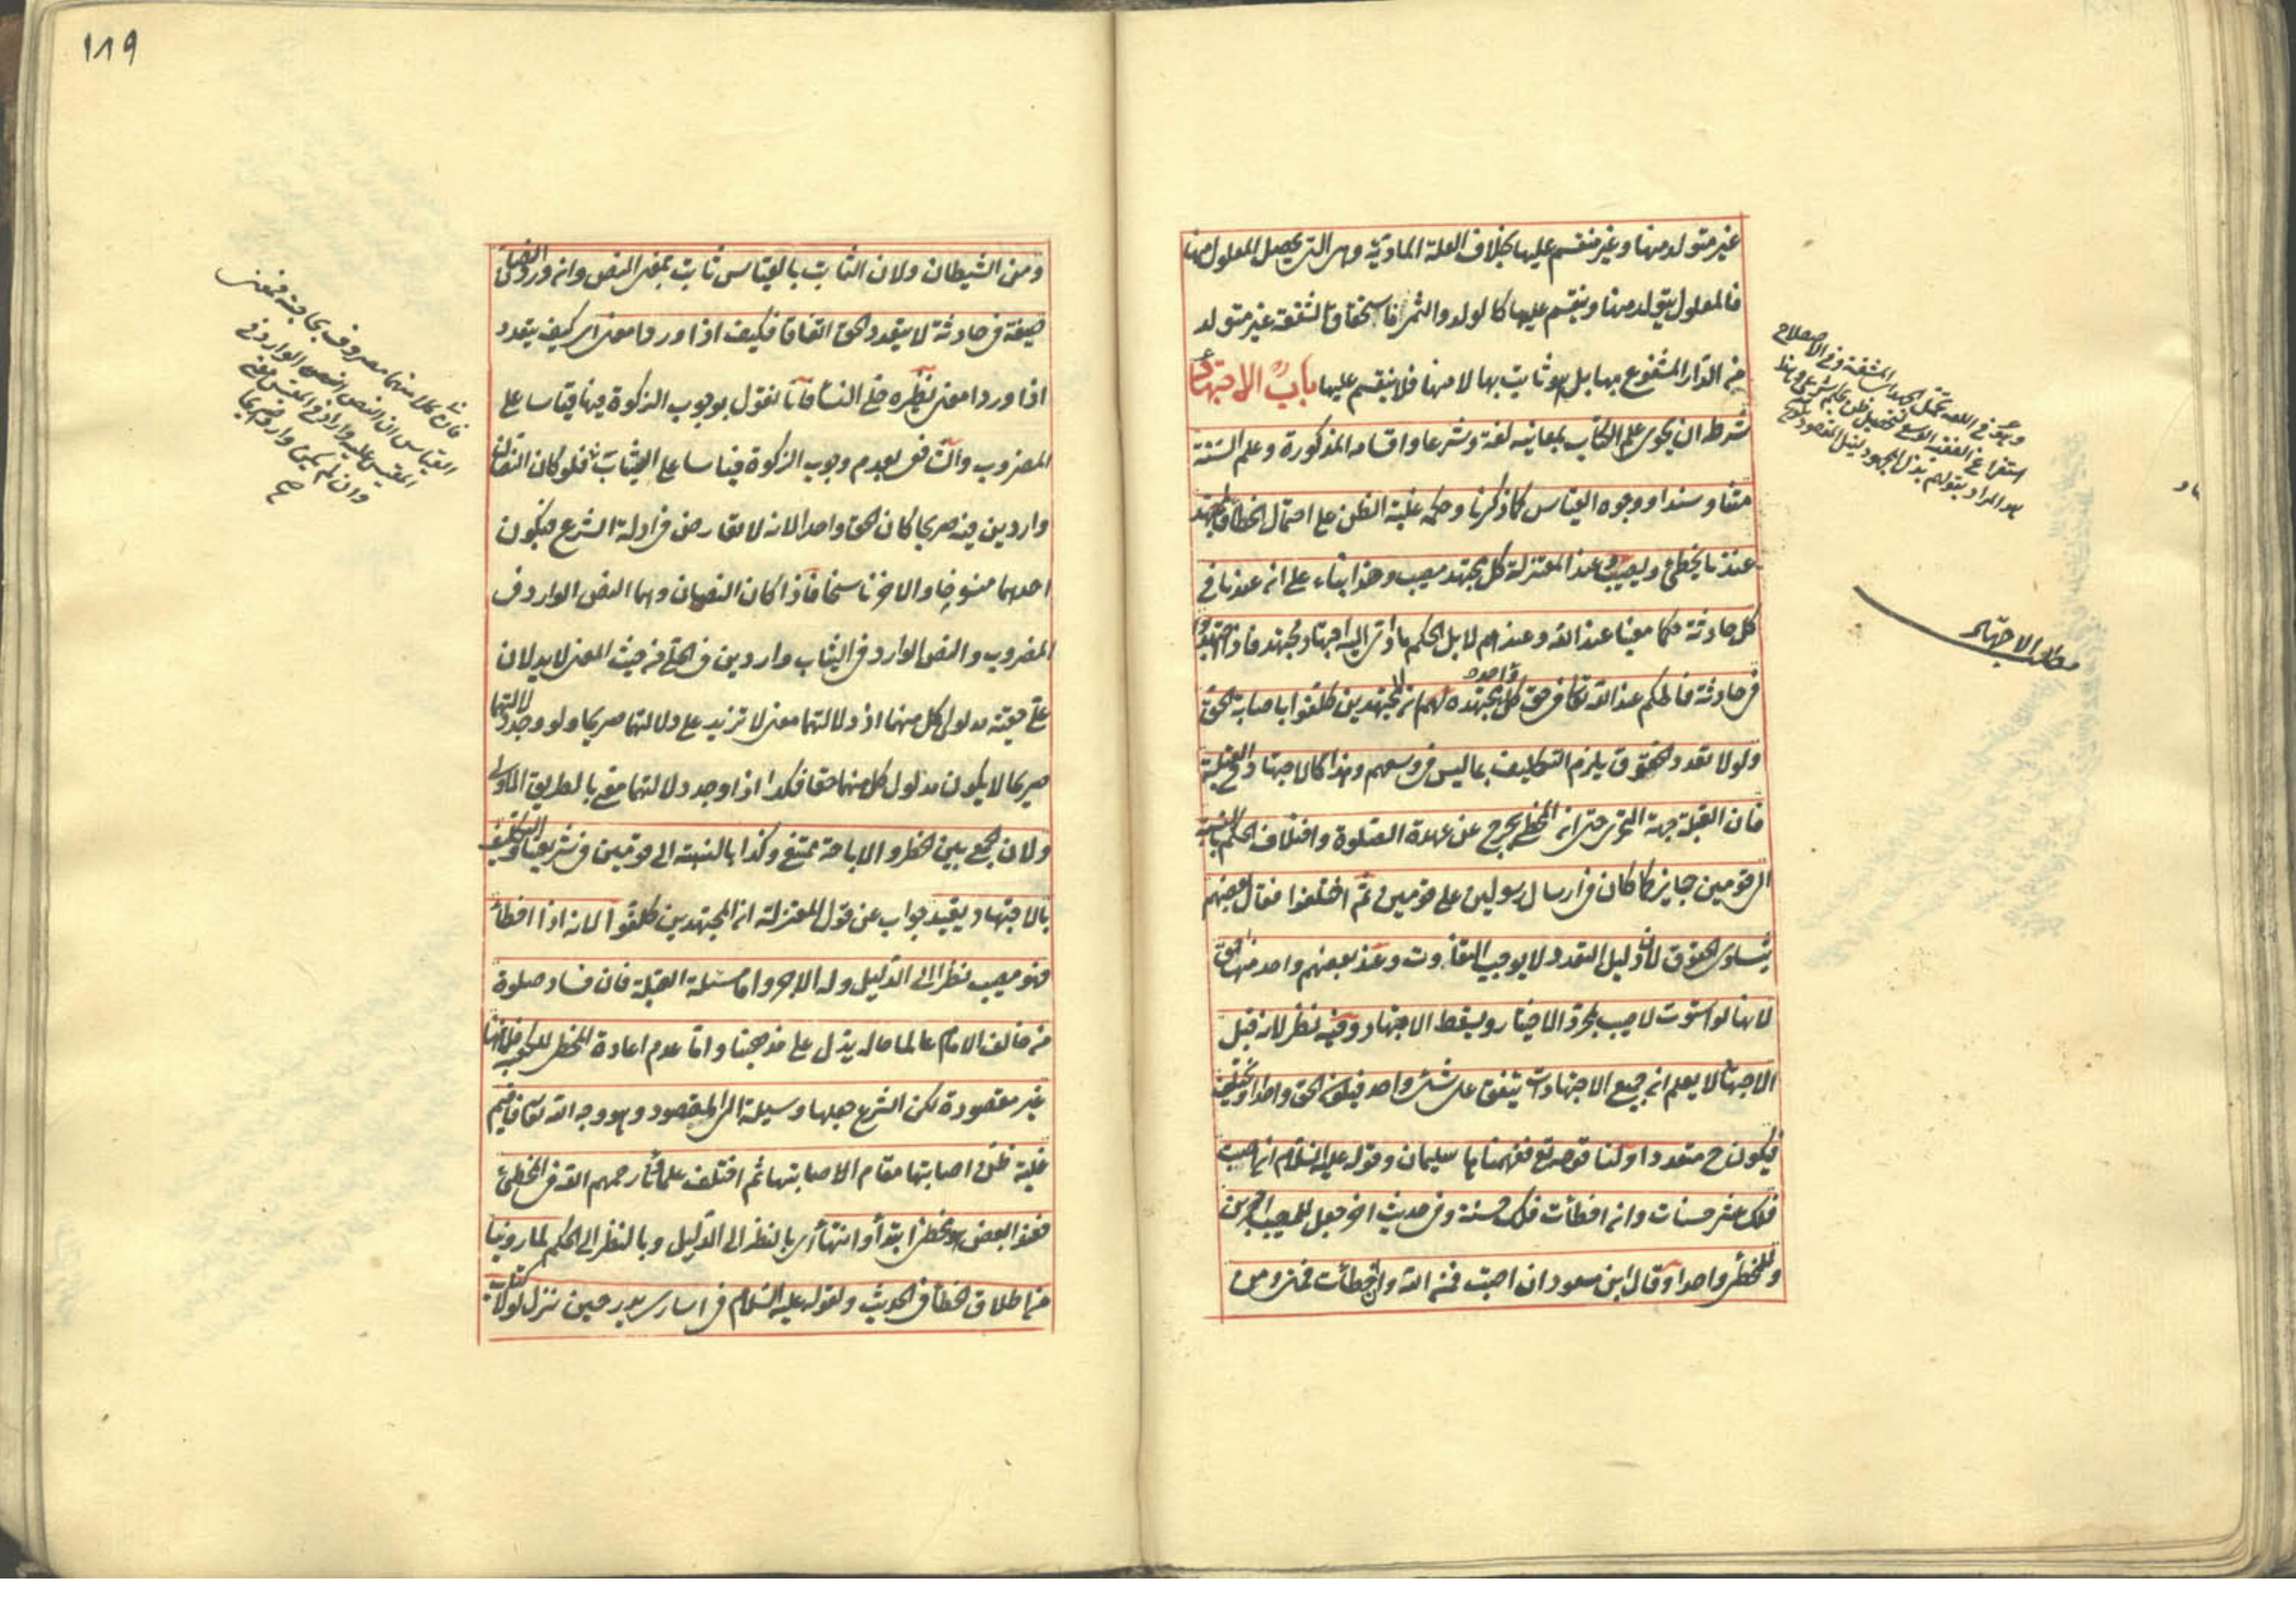 غير متولد منها وغير منقسم عليها بخلاف العلة المادية وهى التى يحصل المعلول منها
فالمعلول يتولد منها وينقسم عليها كالولد والثمر فاستحقاق الشفعة غير متولد
من الدار المشفوع بها بل هو ثابت بها لا منها فلا ينقسم عليها باب الاجتهاد
شرط ان يحوى علم الكتاب بمعانيه لغة وشرعا واقسامه المذكورة وعلم السنة
متنا وسندا ووجوه القياس كما ذكرنا وحكمه غلبة الظن على احتمال الخطأ فالمجتهد
عندنا يخطئ ويصيب وعند المعتزلة كل مجتهد مصيب وهذا بناء على ان عندنا فى
كل حادثة حكما معينا عند الله وعندهم لا بل الحكم ما ادى اليه اجتهاد مجتهد فاذا اجتهدوا
فى حادثة فالحكم عند الله تعالى فى حق كل واحد مجتهده لهم ان المجتهدين كلفوا باصابة الحق
ولولا تعدد الحقوق يلزم التكليف بما ليس فى وسعهم وهذا كالاجتهاد فى القبلة
فان القبلة جهة التحرى حتى ان المخطئ يخرج عن عهدة الصلوة واختلاف الحكم بالنسبة
الى قومين جايز كما كان فى ارسال رسولين على قومين ثم اختلفوا فقال بعضهم
بتساوى الحقوق لان دليل التعدد لا يوجب التفاوت وعند بعضهم واحد منها احق
لانها لو استوت لاصيب بمجرد الاختيار ويسقط الاجتهاد وفيه نظر لانه قبل
الاجتهاد لا يعلم ان جميع الاجتهادات يتفق على شئ واحد فيكون الحق واحدا او يختلف
فيكون ح متعددا ولنا قوله تع ففهمناها سليمان وقوله عليه السلام ان اصبت
فلك عشر حسنات وان اخطأت فلك حسنة وفى حديث اخر جعل للمصيب اجرين
وللمخطئ واحدا وقال ابن مسعود ان اصبت فمن الله وان اخطأت فمنى ومن
وهو فى اللغة تحمل الجهد اى المشقة وفى الاصطلاح
استفراغ الفقيه الوسع لتحصيل ظن بحكم شرعى وهذا
هو المراد بقولهم بذل المجهود لنيل المقصود
مطلب الاجتهاد
١٨٩
ومن الشيطان ولان الثابت بالقياس ثابت بمعنى النص وانه ورد النصان
صيغة فى حادثة لا يتعدد الحق اتفاقا فكيف اذا وردا معنى اى كيف يتعدد
اذا وردا معنى نظيره حلى النساء فانا نقول بوجوب الزكوة فيها قياسا على
المضروب والشافعى بعدم وجوب الزكوة قياسا على الثياب فلو كان النصان
واردين فيه صريحا كان الحق واحدا لانه لا تعارض فى ادلة الشرع فيكون
احدهما منسوخا والاخر ناسخا فاذا كان النصان وهما النص الوارد فى
المضروب والنص الوارد فى الثياب واردين فى الحلى من حيث المعنى لا يدلان
على حقية مدلول كل منهما اذ دلالتهما معنى لا تزيد على دلالتهما صريحا ولو وجد دلالتهما
صريحا لا يكون مدلول كل منهما حقا فكذا اذا وجد دلالتهما معنى بالطريق الاولى
ولان الجمع بين الحظر والاباحة ممتنع وكذا بالنسبة الى قومين فى شريعتنا والتكليف
بالاجتهاد يفيد جواب عن قول المعتزلة ان المجتهدين كلفوا لانه اذا اخطأ
فهو مصيب نظرا الى الدليل وله الاجر واما مسئلة القبلة فان فساد صلوة
من خالف الامام عالما حاله يدل على مذهبنا واما عدم اعادة المخطئ للكعبة فلانها
غير مقصودة لكن الشرع جعلها وسيلة الى المقصود وهو وجه الله تعالى فاقيم
غلبة ظن اصابتها مقام الاصابتها ثم اختلف علماؤنا رحمهم الله فى المخطئ
فعند البعض هو مخطئ ابتداء وانتهاء اى بالنظر الى الدليل وبالنظر الى الحكم لما روينا
من اطلاق الخطأ فى الحديث ولقوله عليه السلام فى اسارى بدر حين نزل لولا كتاب
فان كلا منهما مصروف بحاجته فمعنى
القياس ان النص الوارد فى
المقيس عليه وارد فى المقيس معنى
وان لم يكن واردا صريحا